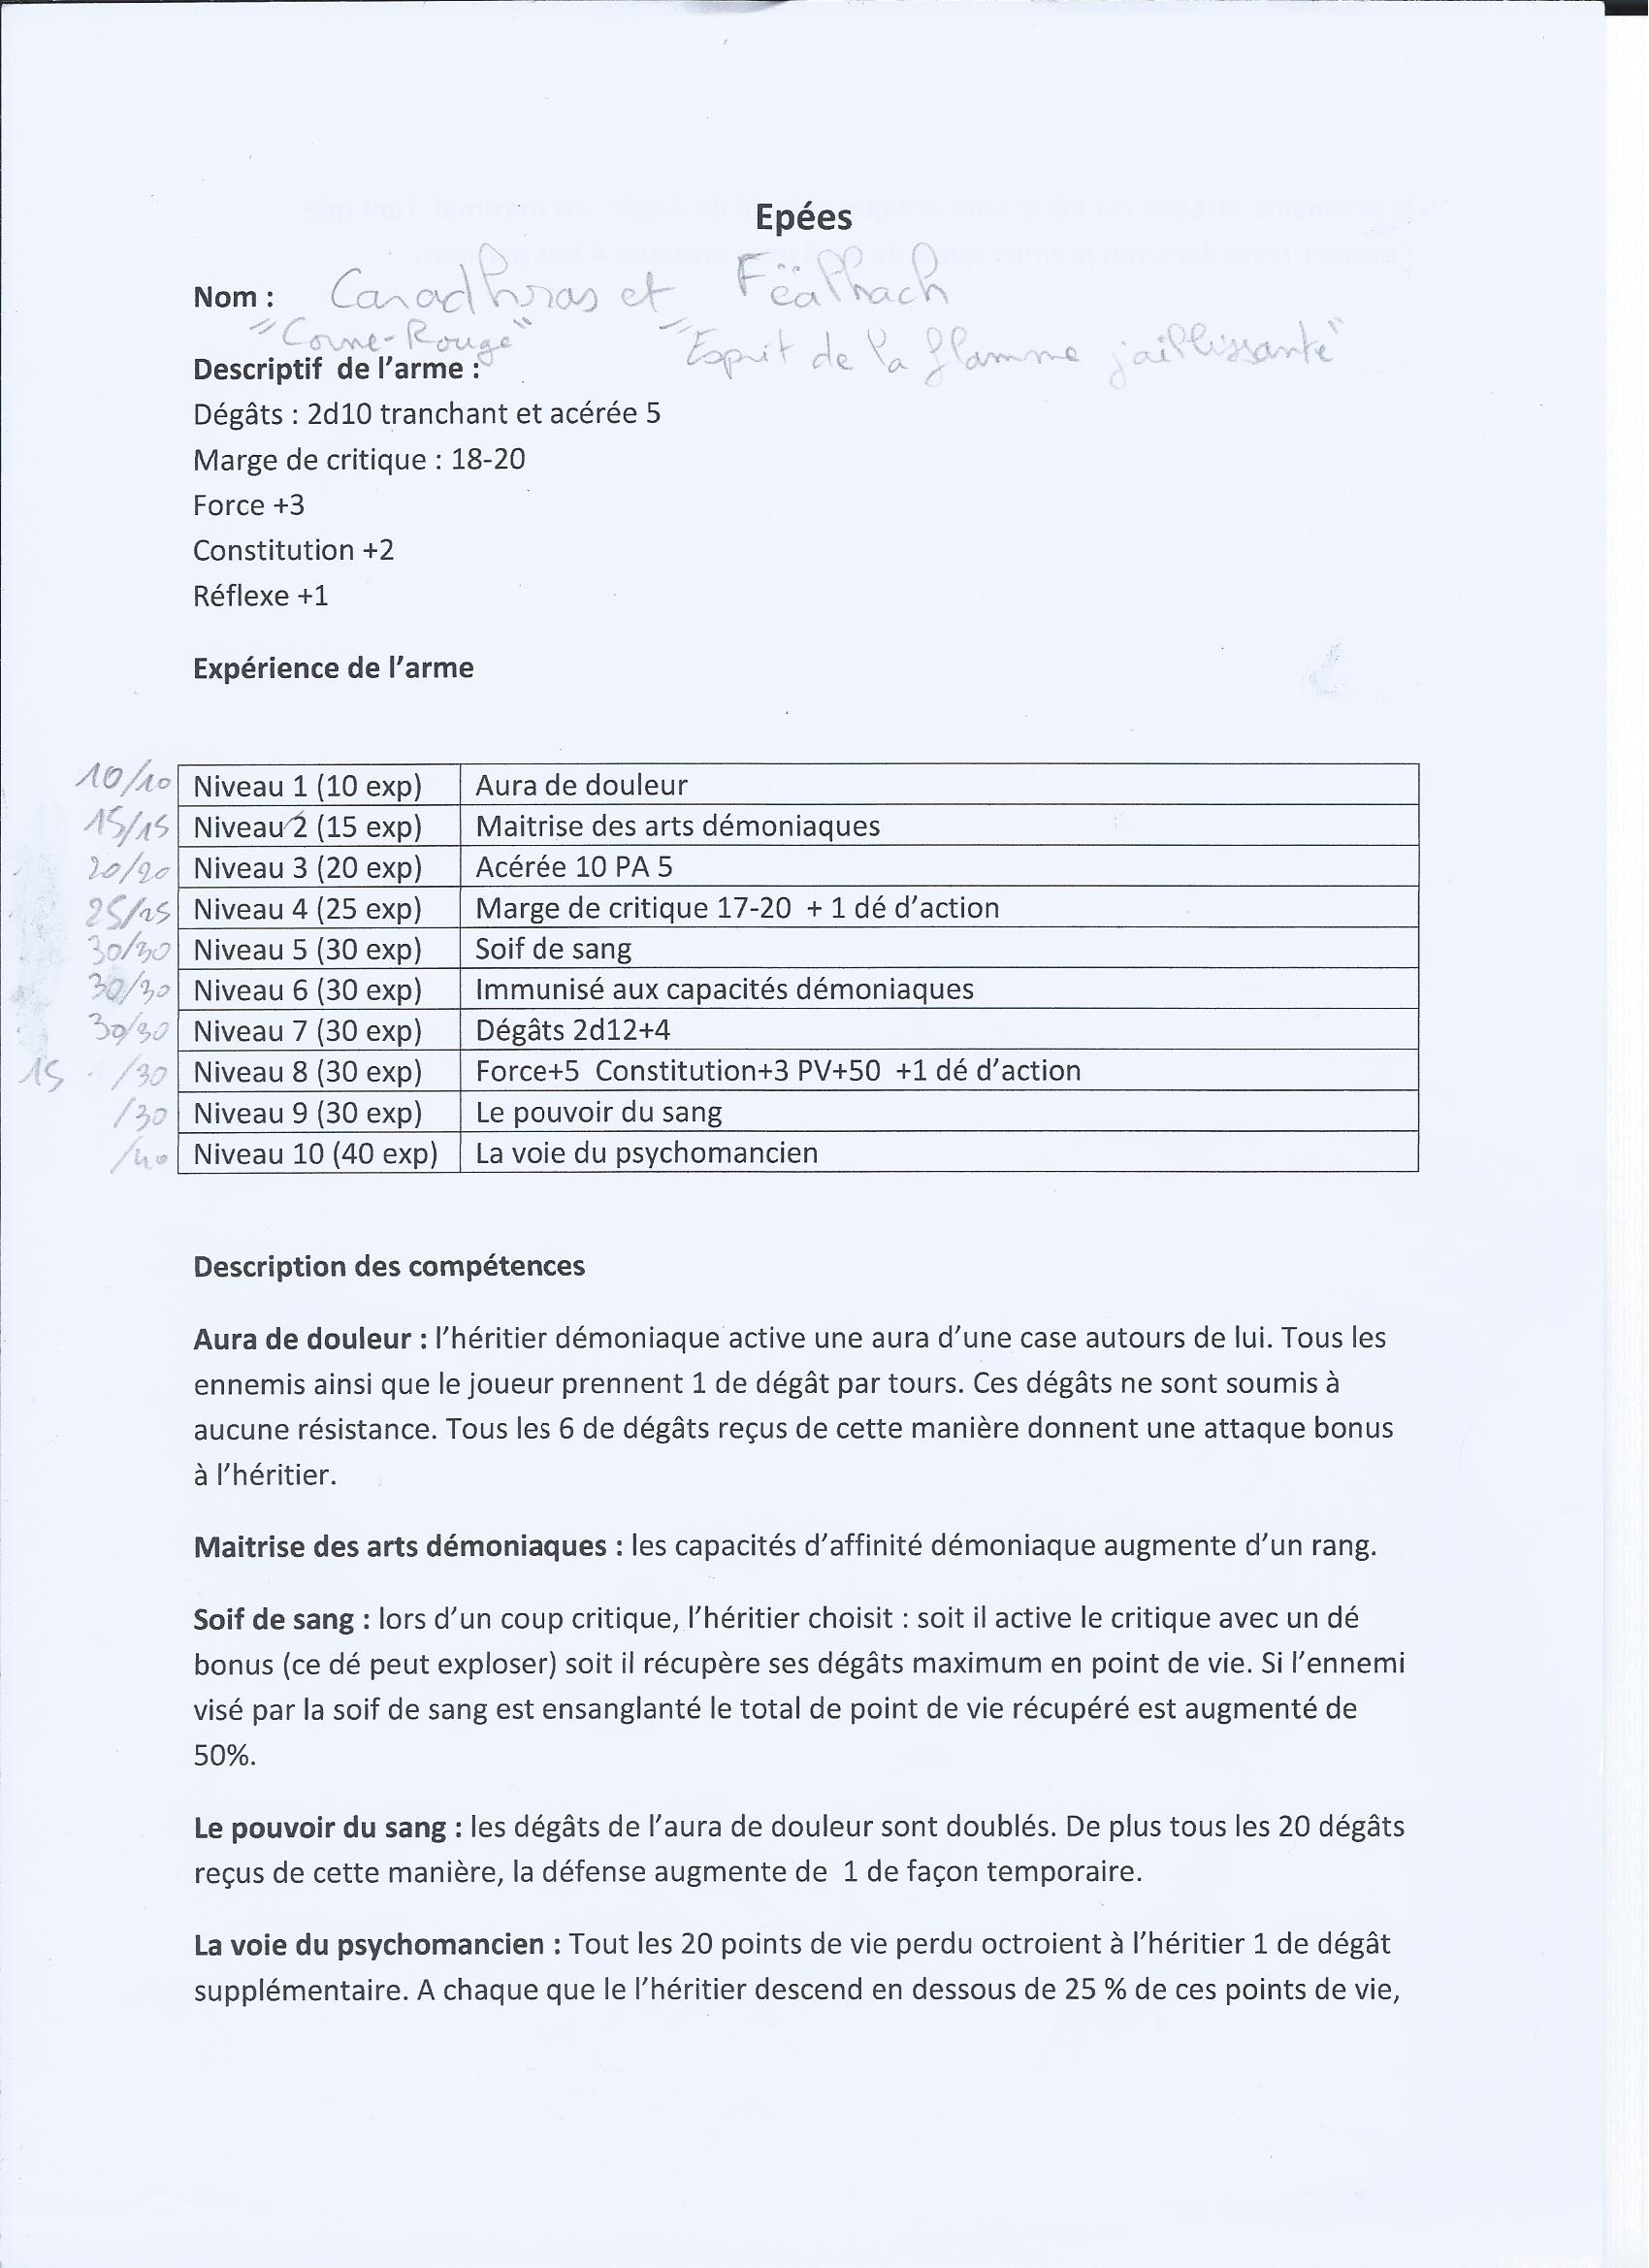 Epées
Nom : Caradhras et Fëalhach
"Corne-Rouge" "Esprit de la flamme jaillissante"
Descriptif de l'arme :
Dégâts : 2d10 tranchant et acérée 5
Marge de critique : 18-20
Force +3
Constitution +2
Réflexe +1
Expérience de l'arme
10/10 Niveau 1 (10 exp) Aura de douleur
15/15 Niveau 2 (15 exp) Maitrise des arts démoniaques
20/20 Niveau 3 (20 exp) Acérée 10 PA 5
25/25 Niveau 4 (25 exp) Marge de critique 17-20 + 1 dé d'action
30/30 Niveau 5 (30 exp) Soif de sang
30/30 Niveau 6 (30 exp) Immunisé aux capacités démoniaques
30/30 Niveau 7 (30 exp) Dégâts 2d12+4
15 /30 Niveau 8 (30 exp) Force+5 Constitution+3 PV+50 +1 dé d'action
/30 Niveau 9 (30 exp) Le pouvoir du sang
/40 Niveau 10 (40 exp) La voie du psychomancien
Description des compétences
Aura de douleur : l'héritier démoniaque active une aura d'une case autours de lui. Tous les
ennemis ainsi que le joueur prennent 1 de dégât par tours. Ces dégâts ne sont soumis à
aucune résistance. Tous les 6 de dégâts reçus de cette manière donnent une attaque bonus
à l'héritier.
Maitrise des arts démoniaques : les capacités d'affinité démoniaque augmente d'un rang.
Soif de sang : lors d'un coup critique, l'héritier choisit : soit il active le critique avec un dé
bonus (ce dé peut exploser) soit il récupère ses dégâts maximum en point de vie. Si l'ennemi
visé par la soif de sang est ensanglanté le total de point de vie récupéré est augmenté de
50%.
Le pouvoir du sang : les dégâts de l'aura de douleur sont doublés. De plus tous les 20 dégâts
reçus de cette manière, la défense augmente de 1 de façon temporaire.
La voie du psychomancien : Tout les 20 points de vie perdu octroient à l'héritier 1 de dégât
supplémentaire. A chaque que le l'héritier descend en dessous de 25 % de ces points de vie,